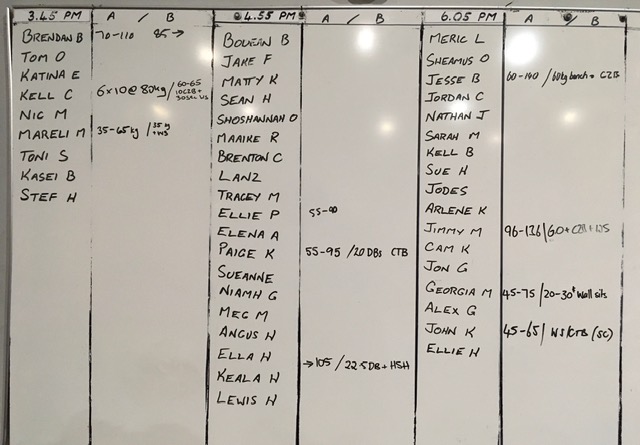 3.45 PM A / B
BRENDAN B 70-110 85→
TOM O
KATINA E
KELL C 6x10@80kg/ 60-65
NIC M
MARELI M 35-65kg / 35kg + WS
TONI S
KASEI B
STEF H
@4.55 PM A / B
BOVEAN B
JAKE F
MATTY K
SEAN H
SHOSHANNAH O
MAAIKE R
BRENTON C
LANZ
TRACEY M
ELLIE P 55-90
ELENA A
PAIGE K 55-95 / 20 DBs CTB
SUEANNE
NIAMH G
MEG M
ANGUS H
ELLA H →105 / 22.5DB + HSH
KEALA H
LEWIS H
6.05 PM A / B
MERIC L
SHEAMUS O
JESSE B 60-140 / 60kg bench + C2B
JORDAN C
NATHAN J
SARAH M
KELL B
SUE H
JODES
ARLENE K
JIMMY M 96-136/60+ C2B + WS
CAM K
JON G
GEORGIA M 45-75 / 20-30° Wall sits
ALEX G
JOHN K 45-65 / WS/CTB (SC)
ELLIE H